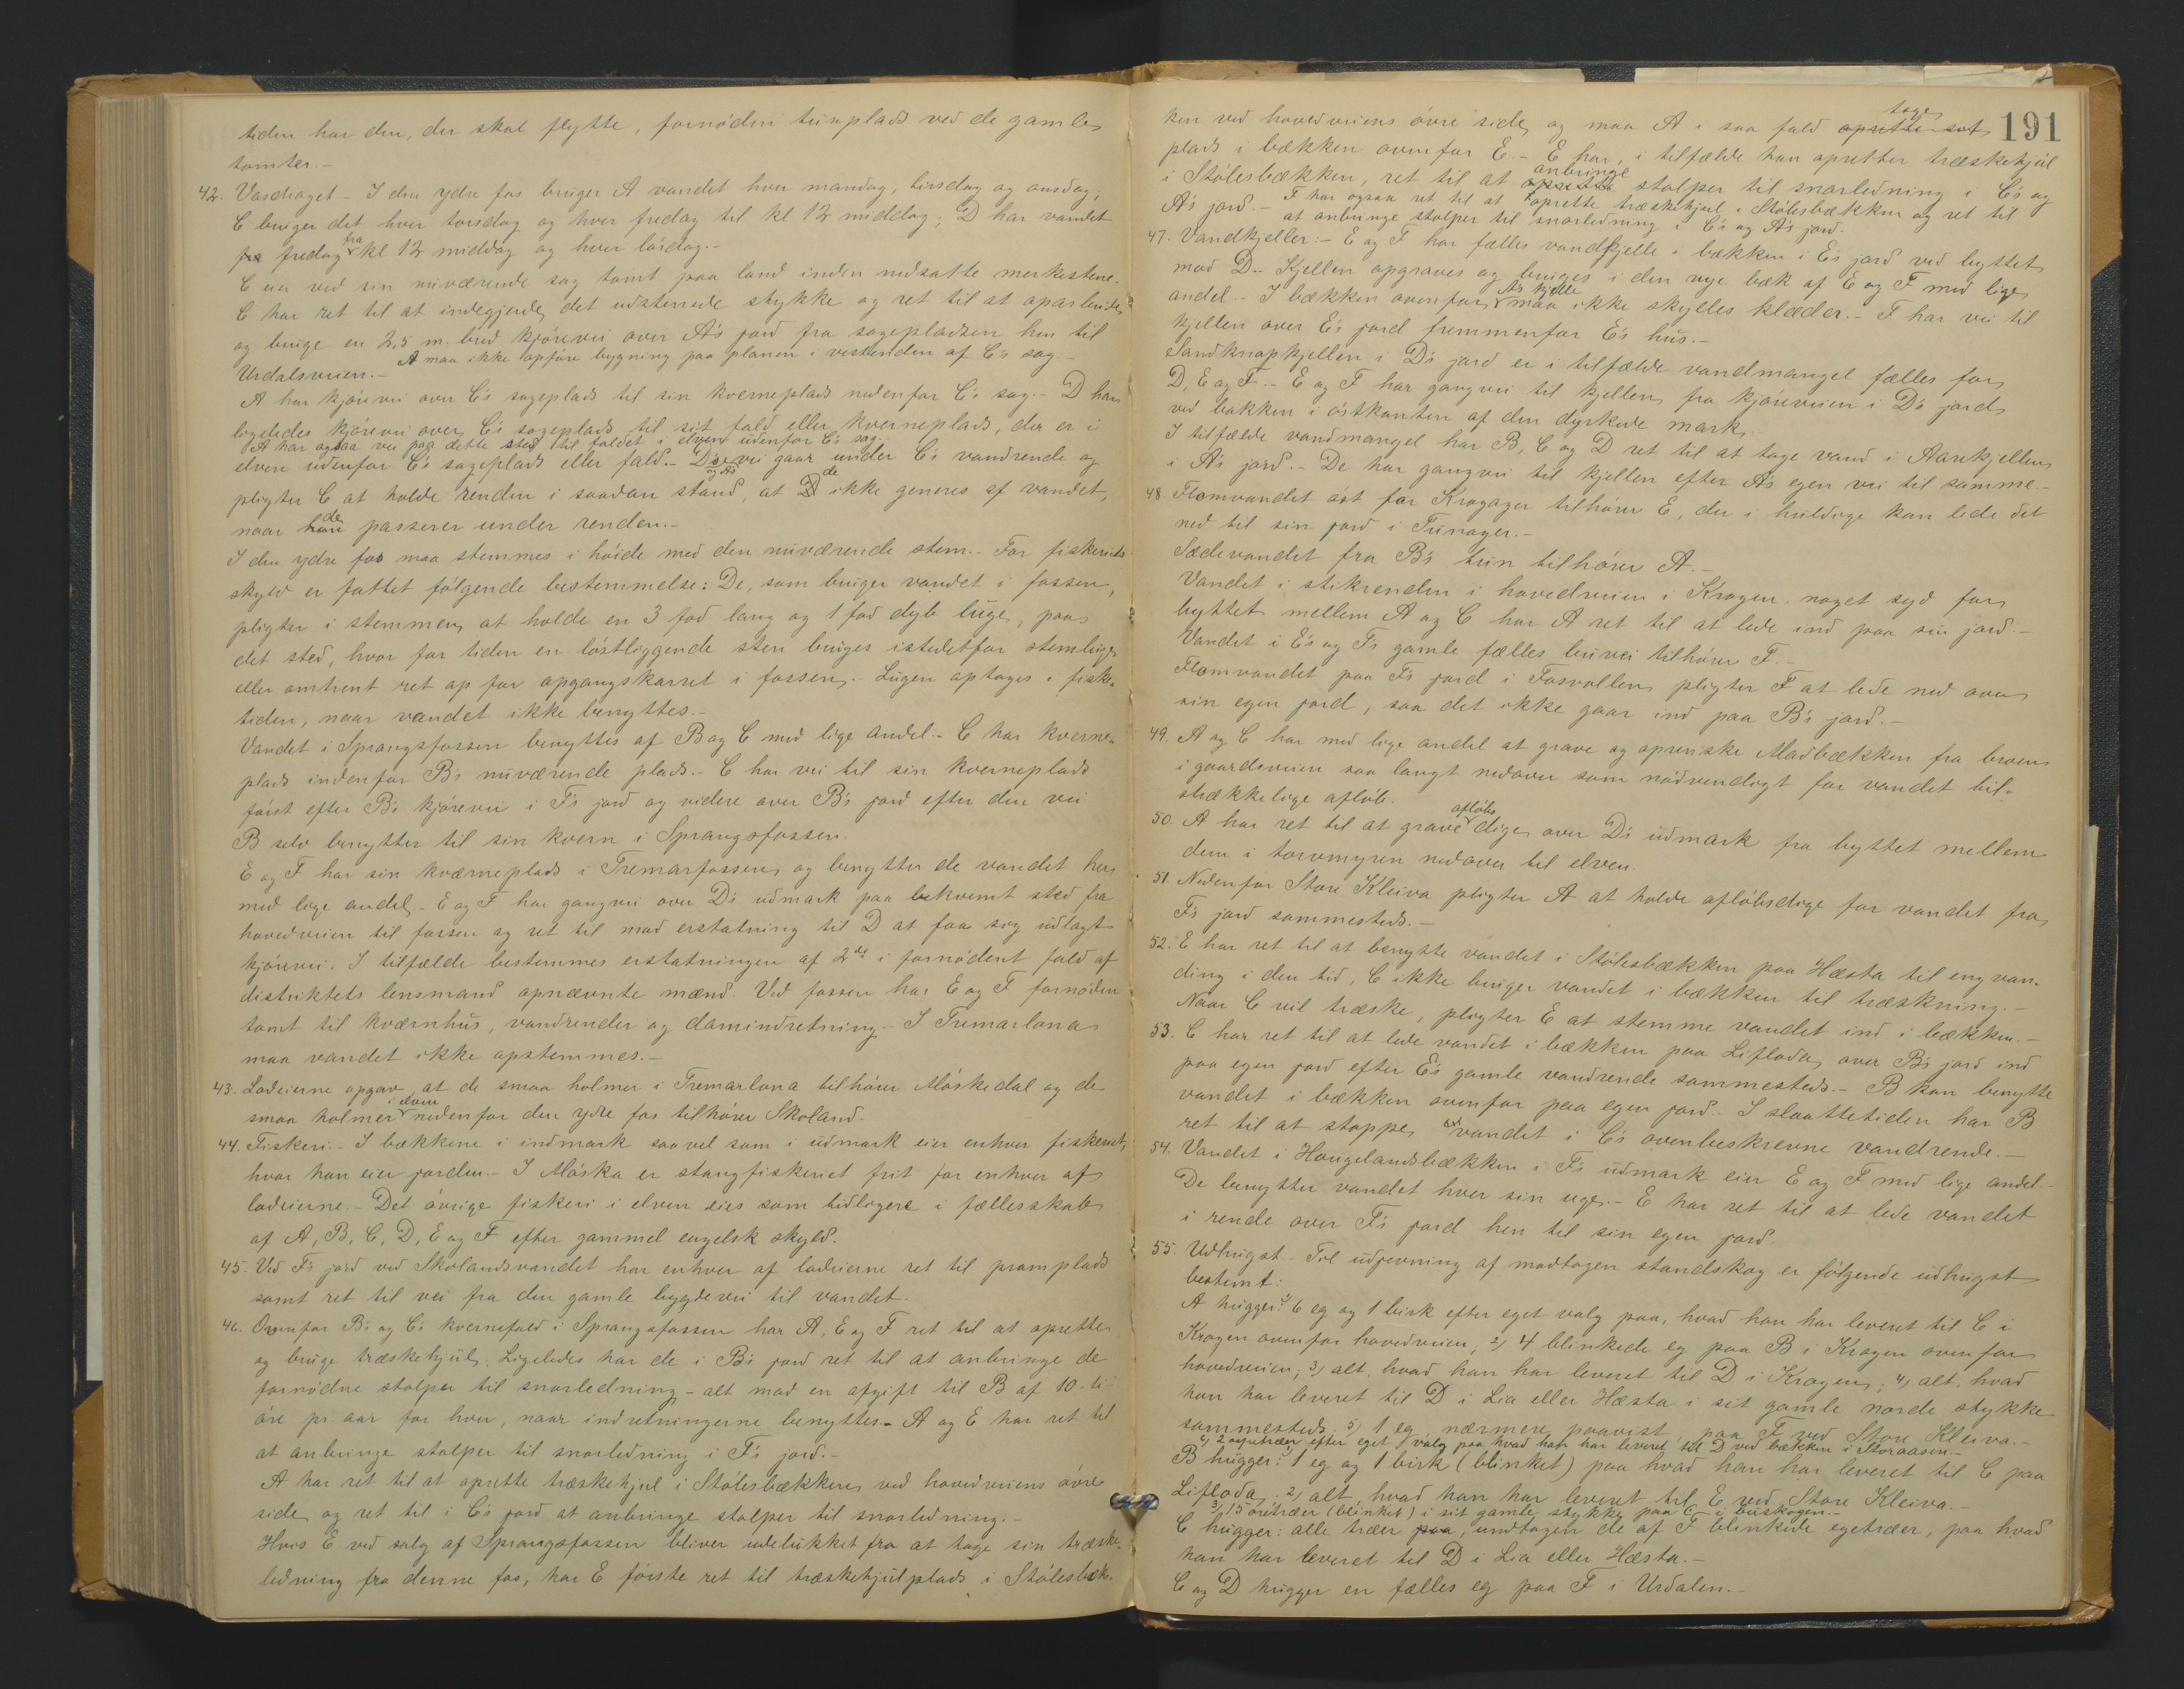 tiden har den, der skal flytte, fornöden tunplads ved de gamle
tomter.-
42. Vasdraget - I den ydre fos bruger A vandet hver mandag, tirsdag og onsdag;
C bruger det hver torsdag og hver fredag til kl 12 middag; D har vandet
fra fredag fra kl 12 middag og hver lördag.-
C eier ved sin nuværende sag tomt paa land inden nedsatte merkestene.
C har ret til at indegjerde det udstenede stykke og ret til at oparbeide
og bruge en 2,5 m. bred kjörevei over A's jord fra sagepladsen hen til
Urdalsveien.- A maa ikke opföre bygning paa planen i vestenden af C's sag.-
A har kjörevei over C's sageplads til sin kverneplads nedenfor C's sag.- D har
ligeledes kjörevei over C's sageplads til sit fald eller kverneplads, der er i
A har ogsaa vei paa dette sted til faldet i elven udenfor C's sag.
elven udenfor C's sageplads eller fald.- D's og A's vei gaar under C's vandrende og
pligter C at holde renden i saadan stand, at D de ikke generes af vandet,
naar han de passerer under renden.-
I den ydre fos maa stemmes i höide med den nuværende stem.- For fiskeriets
skyld er fattet fölgende bestemmelse: De, som bruger vandet i fossen,
pligter i stemmen at holde en 3 fod lang og 1 fod dyb luge, paa
det sted, hvor for tiden en löstliggende sten bruges istedetfor stemluge
eller omtrent ret op for opgangskarret i fossen.- Lugen optages i fiske-
tiden, naar vandet ikke benyttes.-
Vandet i Sprangsfossen benyttes af B og C med lige andel.- C har kverne-
plads indenfor B's nuværende plads.- C har vei til sin kverneplads
först efter B's kjörevei i F's jord og videre over B's jord efter den vei
B selv benytter til sin kvern i Sprangsfossen.
E og F har sin kværneplads i Tremarfossen og benytter de vandet her
med lige andel.- E og F har gangvei over D's udmark paa bekvemt sted fra
hovedveien til fossen og ret til mod erstatning til D at faa sig udlagt
kjörevei. I tilfælde bestemmes erstatningen af 2de i fornödent fald af
distriktets lensmand opnævnte mænd. Ved fossen har E og F fornöden
tomt til kværnhus, vandrender og damindretning.- I Tremarlona
maa vandet ikke opstemmes.-
43. Lodeierne opgav, at de smaa holmer i Tremarlona tilhörer Möskedal og de
smaa holmer i elven nedenfor den ydre fos tilhörer Skoland.
44. Fiskeri.- I bækkene i indmark saavel som i udmark eier enhver fiskeriet,
hvor han eier jorden.- I Möska er stangfiskeriet frit for enhver af
lodeierne.- Det övrige fiskeri i elven eies som tidligere i fællesskab
af A, B, C, D, E og F efter gammel engelsk skyld.
45. Ved F's jord ved Skolandsvandet har enhver af lodeierne ret til pramplads
samt ret til vei fra den gamle bygdevei til vandet.
46. Ovenfor B's og C's kvernefald i Sprangsfossen har A, E og F ret til at oprette
og bruge træskehjul. Ligeledes har de i B's jord ret til at anbringe de
fornödne stolper til snorledning - alt mod en afgift til B af 10-ti-
öre pr. aar for hver, naar indretningerne benyttes.- A og E har ret til
at anbringe stolper til snorledning i F's jord.-
A har ret til at oprette træskehjul i Stölesbækken ved hovedveiens övre
side og ret til i C's jord at anbringe stolper til snorledning.-
Hvis E ved salg af Sprangsfossen bliver udelukket fra at tage sin træske-
ledning fra denne fos, har E förste ret til træskehjulplads i Stölesbæk-
191
ken ved hovedveiens övre side og maa A i saa fald oprette sat tage
plads i bækken ovenfor E.- E har, i tilfælde han opretter træskehjul
i Stölesbækken, ret til at opsætte anbringe stolper til snorledning i C's og
A's jord.- F har ogsaa ret til at oprette træskehjul i Stölesbækken og ret til
at anbringe stolper til snorledning i C's og A's jord.
47. Vandkjeller:- E og F har fælles vandkjelle i bækken i E's jord ved byttet
mod D.- Kjellen opgraves og bruges i den nye bæk af E og F med lige
andel.- I bækken ovenfor A's kjelle maa ikke skylles klæder.- F har vei til
kjellen over E's jord fremmenfor E's hus.-
Sandknapkjellen i D's jord er i tilfælde vandmangel fælles for
D, E og F.- E og F har gangvei til kjellen fra kjöreveien i D's jord
ved bakken i östkanten af den dyrkede mark.-
I tilfælde vandmangel har B, C og D ret til at tage vand i Aarekjellen
i A's jord.- De har gangvei til kjellen efter A's egen vei til samme.-
48. Flomvandet öst for Kragager tilhörer E, der i huldige kan lede det
ned til sin jord i Tunager.-
Sædevandet fra B's tun tilhörer A.-
Vandet i stikrenden i hovedveien i Kragen noget syd for
byttet mellem A og C har A ret til at lede ind paa sin jord.-
Vandet i E's og F's gamle fælles buvei tilhörer F.-
Flomvandet paa F's jord i Fosvollen pligter F at lede ned over
sin egen jord, saa det ikke gaar ind paa B's jord.-
49. A og C har med lige andel at grave og oprenske Madbækken fra broen
i gaardsveien saa langt nedover som nödvendigt for vandet til-
strækkelige aflöb.
50. A har ret til at grave aflöbs dige over D's udmark fra byttet mellem
dem i torvmyren nedover til elven.
51. Nedenfor Store Kleiva pligter A at holde aflöbsdige for vandet fra
F's jord sammesteds.-
52. E har ret til at benytte vandet i Stölesbækken paa Hæsta til engvan-
ding i den tid, C ikke bruger vandet i bækken til træskning.-
Naar C vil træske, pligter E at stemme vandet ind i bækken.-
53. C har ret til at lede vandet i bækken paa Lifloda over B's jord ind
paa egen jord efter E's gamle vandrende sammesteds.- B kan benytte
vandet i bækken ovenfor paa egen jord.- I slaattetiden har B
ret til at stoppe vandet i C's ovenbeskrevne vandrende.-
54. Vandet i Haugelandsbækken i F's udmark eier E og F med lige andel.-
De benytter vandet hver sin uge.- E har ret til at lede vandet
i rende over F's jord hen til sin egen jord.
55. Udhugst.- Til udjevning af modtagen standskog er fölgende udhugst
bestemt:
A hugger: 1) 6 eg og 1 birk efter eget valg paa, hvad han har leveret til C i
Kragen ovenfor hovedveien; 2) 4 blinkede eg paa B i Kragen ovenfor
hovedveien; 3) alt, hvad han har leveret til D i Kragen; 4) alt, hvad
han har leveret til D i Lia eller Hæsta i sit gamle nordre stykke
sammesteds. 5) 1 eg, nærmere paavist, paa F ved Store Kleiva.-
6) 2 egetræer efter eget valg paa hvad han har leveret til D ved bækken i Storaasen.-
B hugger: 1 eg og 1 birk (blinket) paa hvad han har leveret til C paa
Lifloda. 2) alt, hvad han har leveret til E ved Store Kleiva.-
3) 15 oretræer (blinket) i sit gamle stykke paa C i buskogen.-
C hugger: alle træer paa, undtagen de af F blinkede egetræer, paa hvad
han har leveret til D i Lia eller Hæsta.-
C og D hugger en fælles eg paa F i Urdalen.-